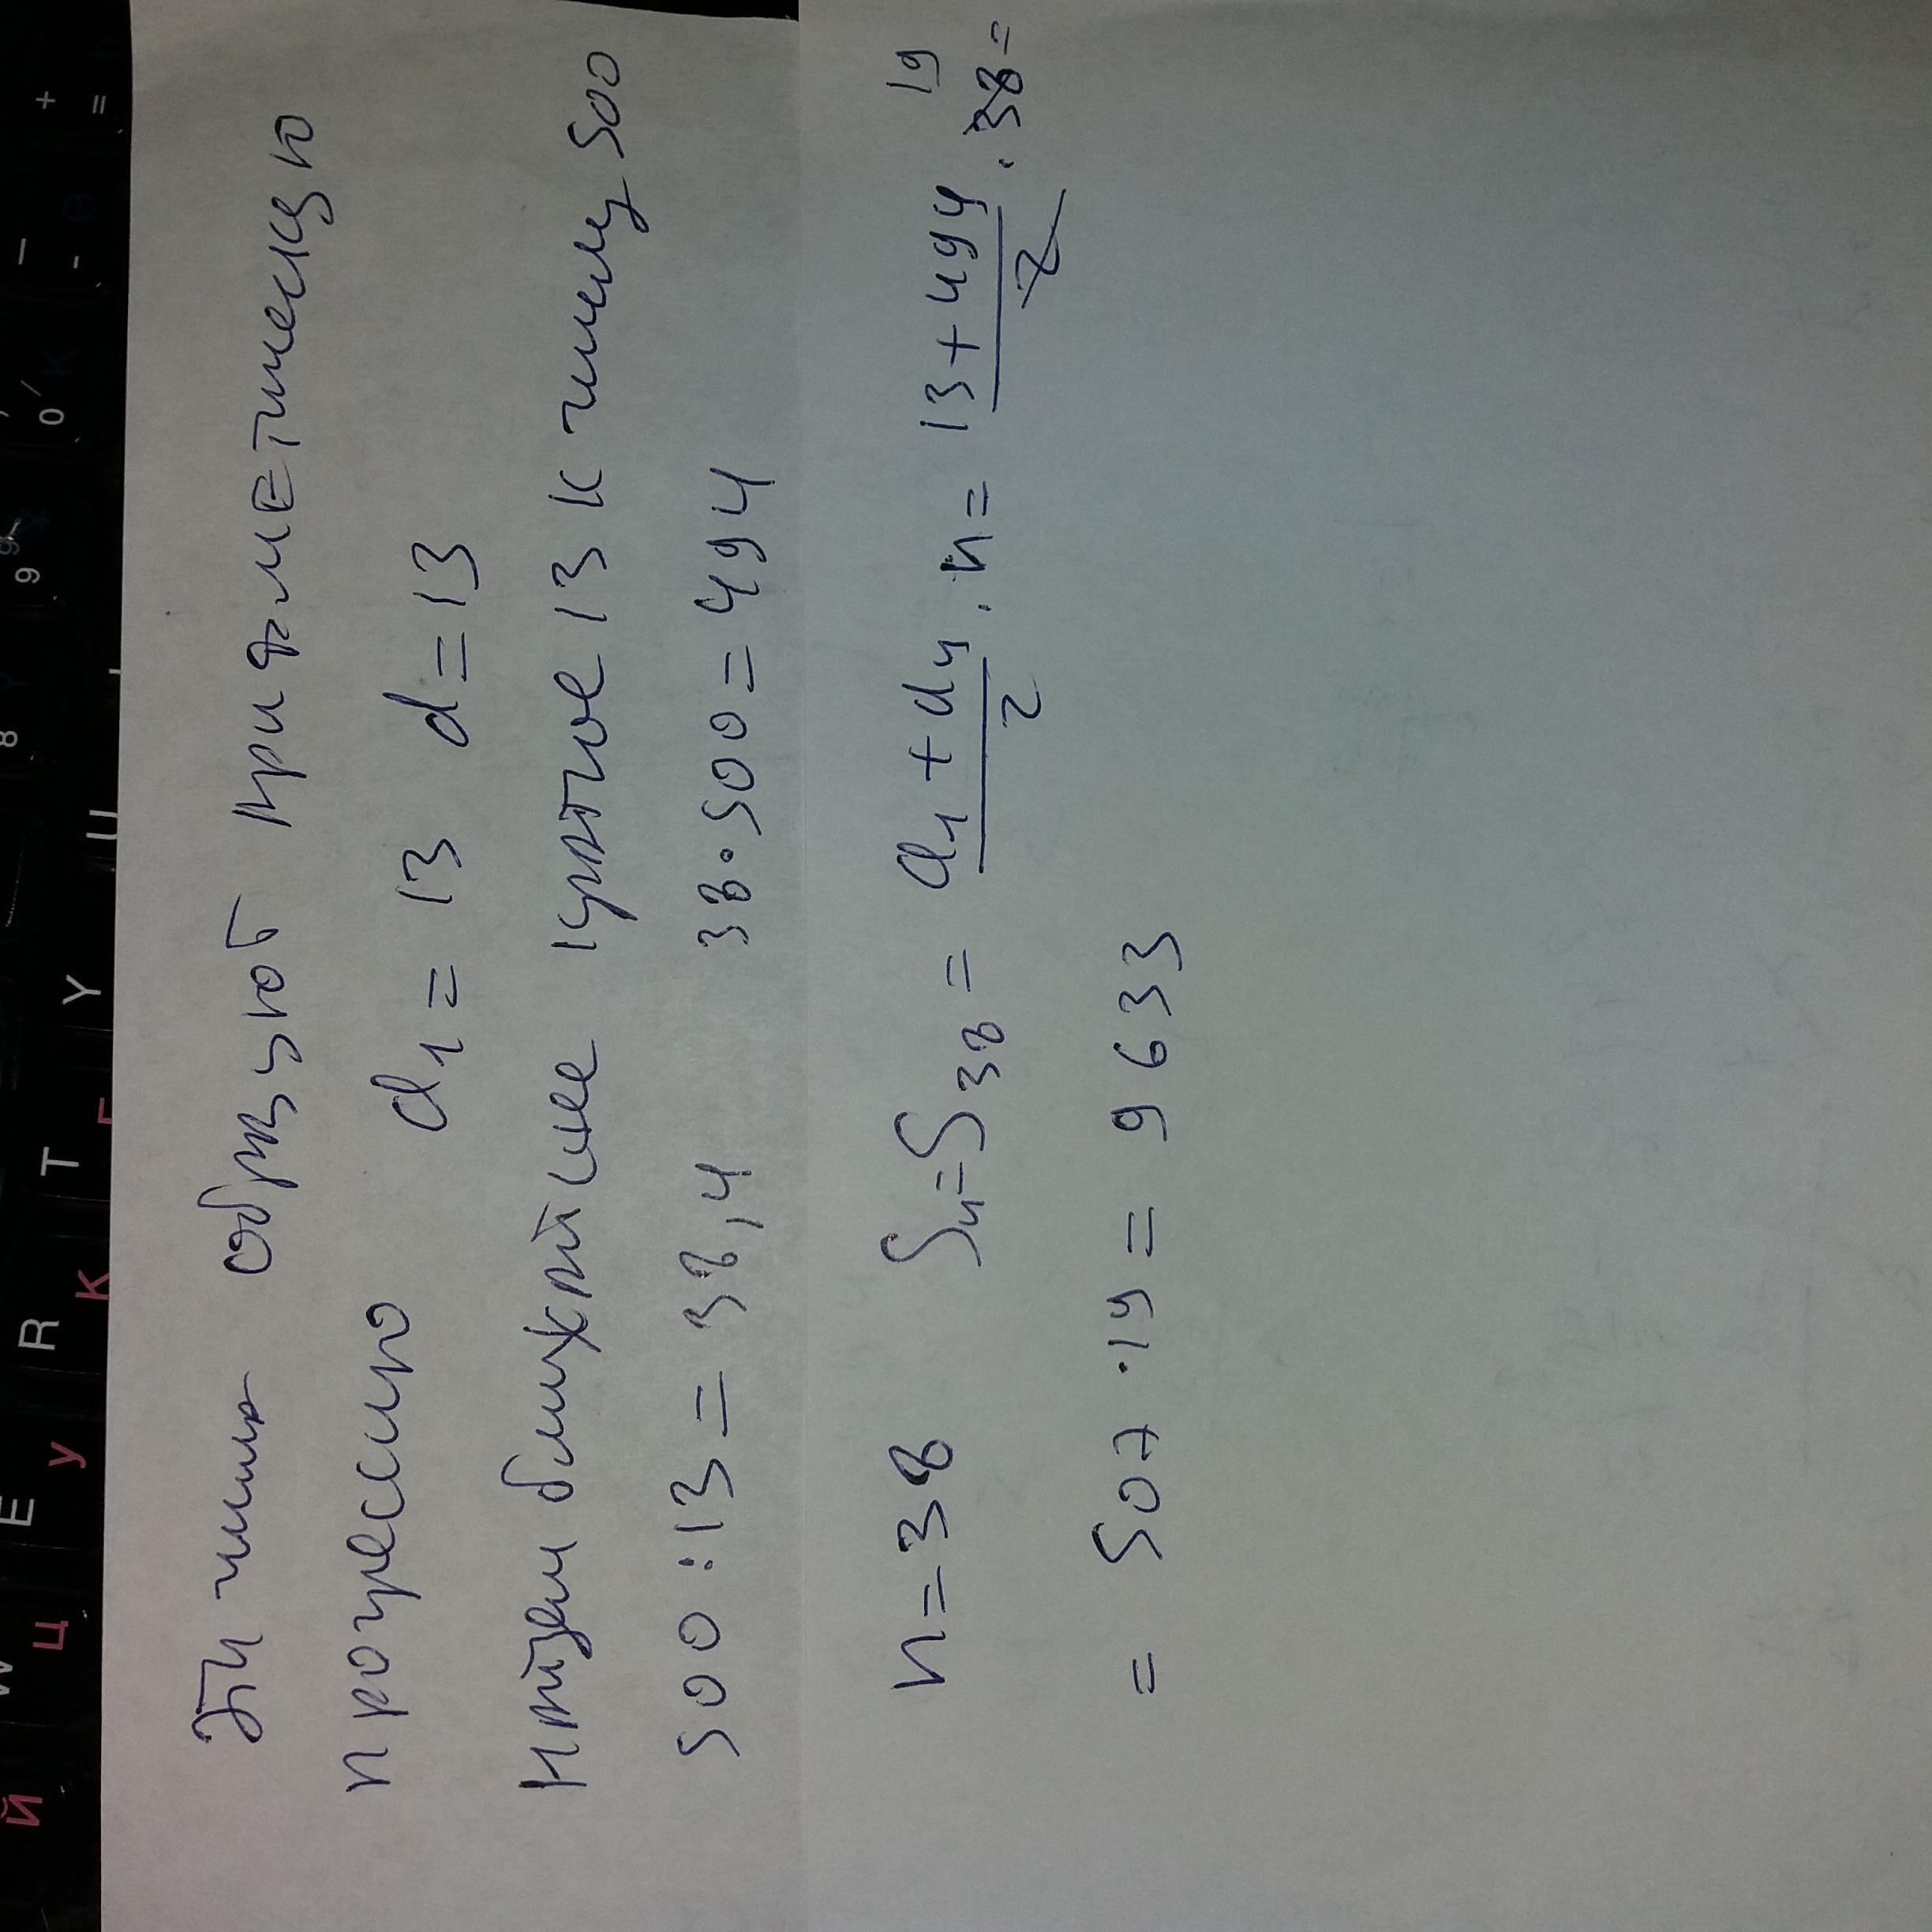 Эти числа образуют арифметическую
прогрессию a₁ = 13 d = 13
Найдем ближайшее кратное 13 к числу 500
500 : 13 = 38,4 38 · 500 = 494
n = 38 Sₙ = S₃₈ = (a₁ + aₙ)/2 · n = (13 + 494)/2 · 38 = 19
= 507 · 19 = 9633
Й Ц У К Е
W E R T Y U
8 9 0 - =
+